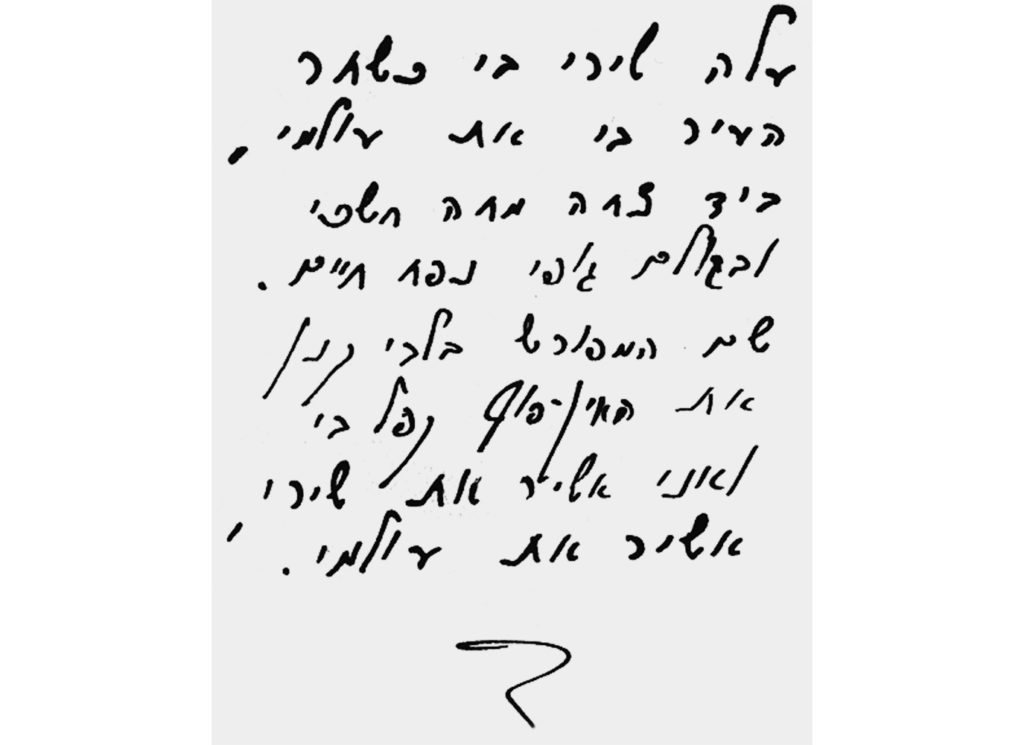 עלה שירי בי כשחר
העיר בי את עולמי,
ביד צחה מחה חשכי
ובגולם גופי נפח חיים.
שם המפורש בלבי קנן
את האין-סוף קפל בי
ואני אשיר את שירי,
אשיר את עולמי.